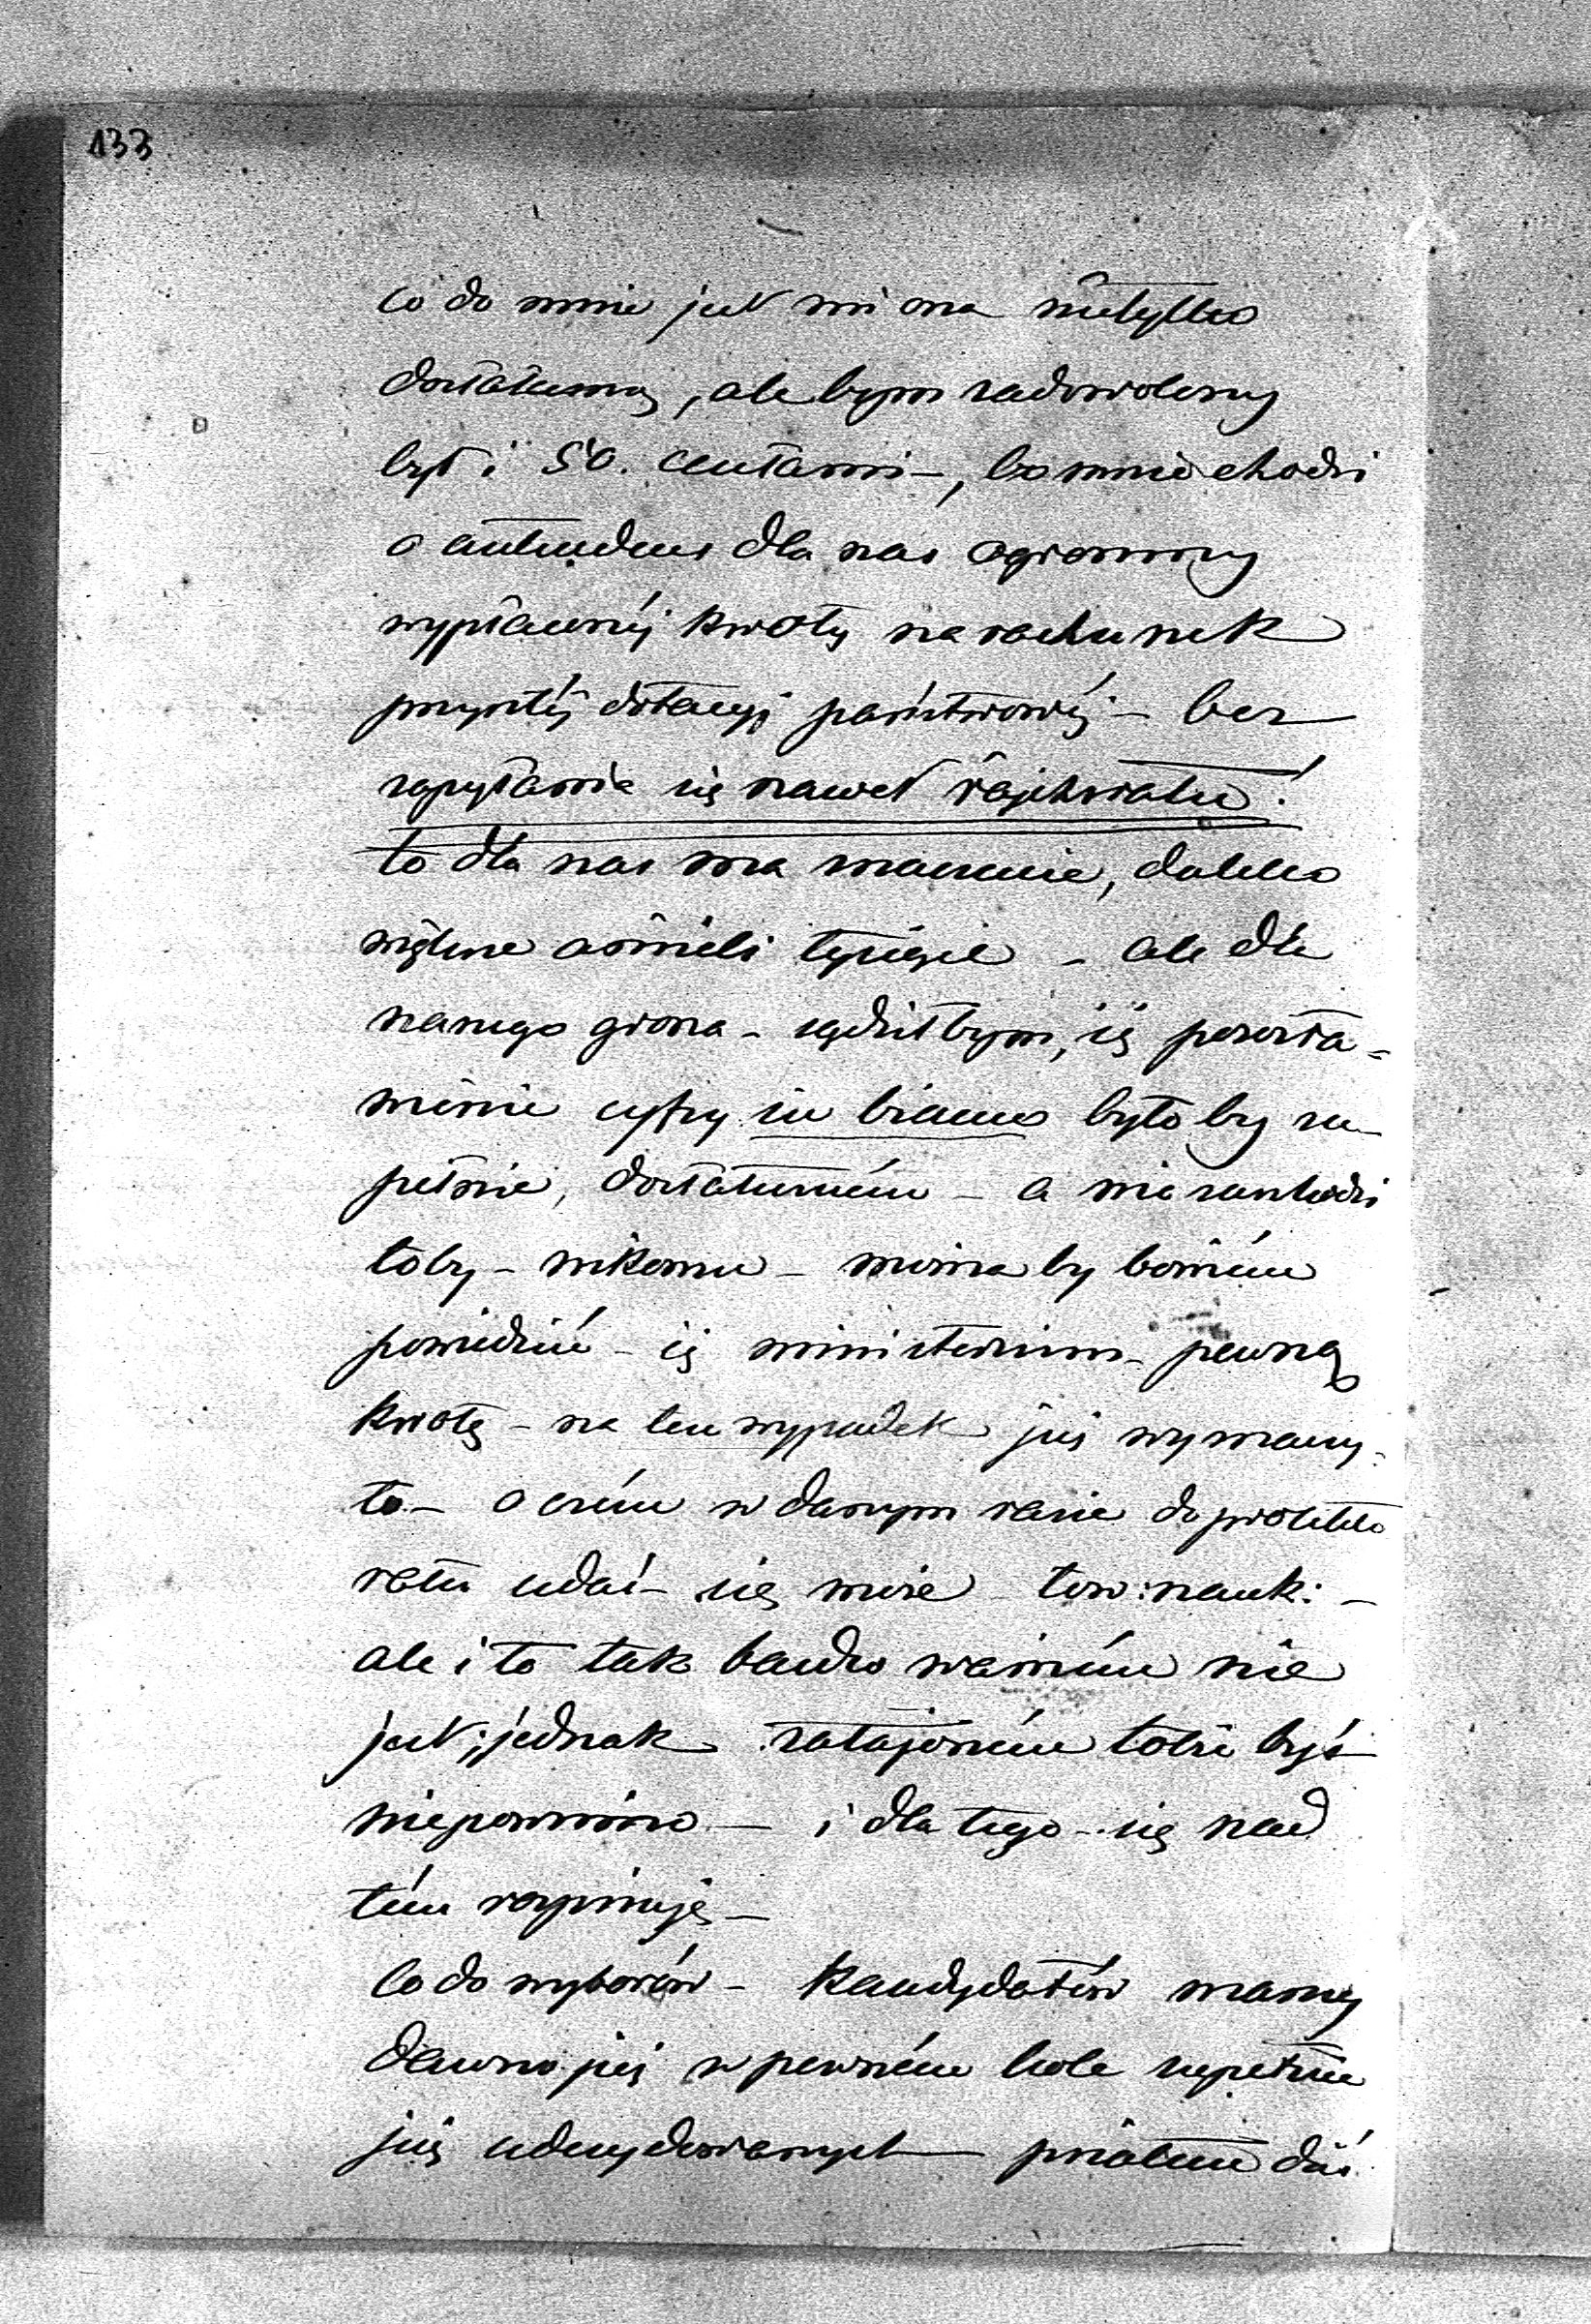 133
co do mnie jest mi ona nietylko
dostateczną, ale bym zadowolony
był i 50. centami –, bo mnie chodzi
o antecedens dla nas ogromny
wypłaconéj kwoty na rachunek
przyszłéj dotacyi państwowéj – bez
zapytania się nawet rajchsratu!
to dla nas ma znaczenie, daleko
większe aniżeli tysiące – ale dla
naszego grona – sądziłbym, iż pozosta-
wienie cyfry in bianco byłoby zu-
pełnie, dostateczném – a nie zaszkodzi
łoby – nikomu – można by bowiém
powiedzieć – iż ministerium – pewną
kwotę – na ten wypadek już wyznaczy-
ło – o czém w danym razie do protekto
ratu udać – się może tow: nauk: –
ale i to tak bardzo ważném nie
jest; jednak zatajoném tobie być
niepowinno – i dla tego – się nad
tém rozpisuję –
Co do wyborów – kandydatów mamy
dawno już w pewném kole zupełnie
już zdecydowanych – dziś